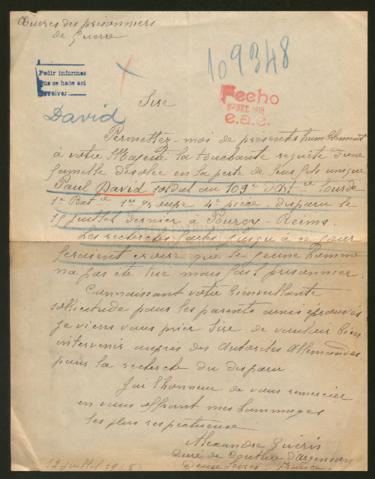 Œuvres des prisonniers
de Guerre
109348
Pedir informes
que se hace así
Fecho
e.a.c.
Sire
David
Permettez-moi de présenter humblement
à votre Majesté la touchante requête d'une
famille désolée en la perte de leur fils unique
Paul David soldat au 109e d'Art. Lourde
4e pièce, disparu le
15 juillet dernier à Reims.
Les recherches faites jusqu'à ce jour
feraient croire que le jeune homme
n'a pas été tué mais fait prisonnier.
Connaissant votre bienveillante
sollicitude pour les parents ainsi éprouvés
je viens vous prier Sire de vouloir bien
intervenir auprès des autorités Allemandes
pour la recherche du disparu
J'ai l'honneur de vous remercier
en vous offrant mes hommages
les plus respectueux
Alexandre Guéris
Curé de Couture d'Argenson
Deux-Sèvres France